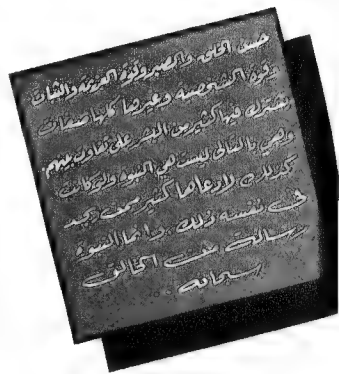 حسن الخلق والصبر وقوة العزيمة والثبات
وقوة الشخصية وغيرها كلها صفات
يشترك فيها كثير من البشر على تفاوت بينهم
وهي بالتالي ليست هي النبوة ولو كانت
كذلك لادعاها كثير ممن يجد
في نفسه ذلك، وإنما النبوة
رسالة من الخالق
سبحانه